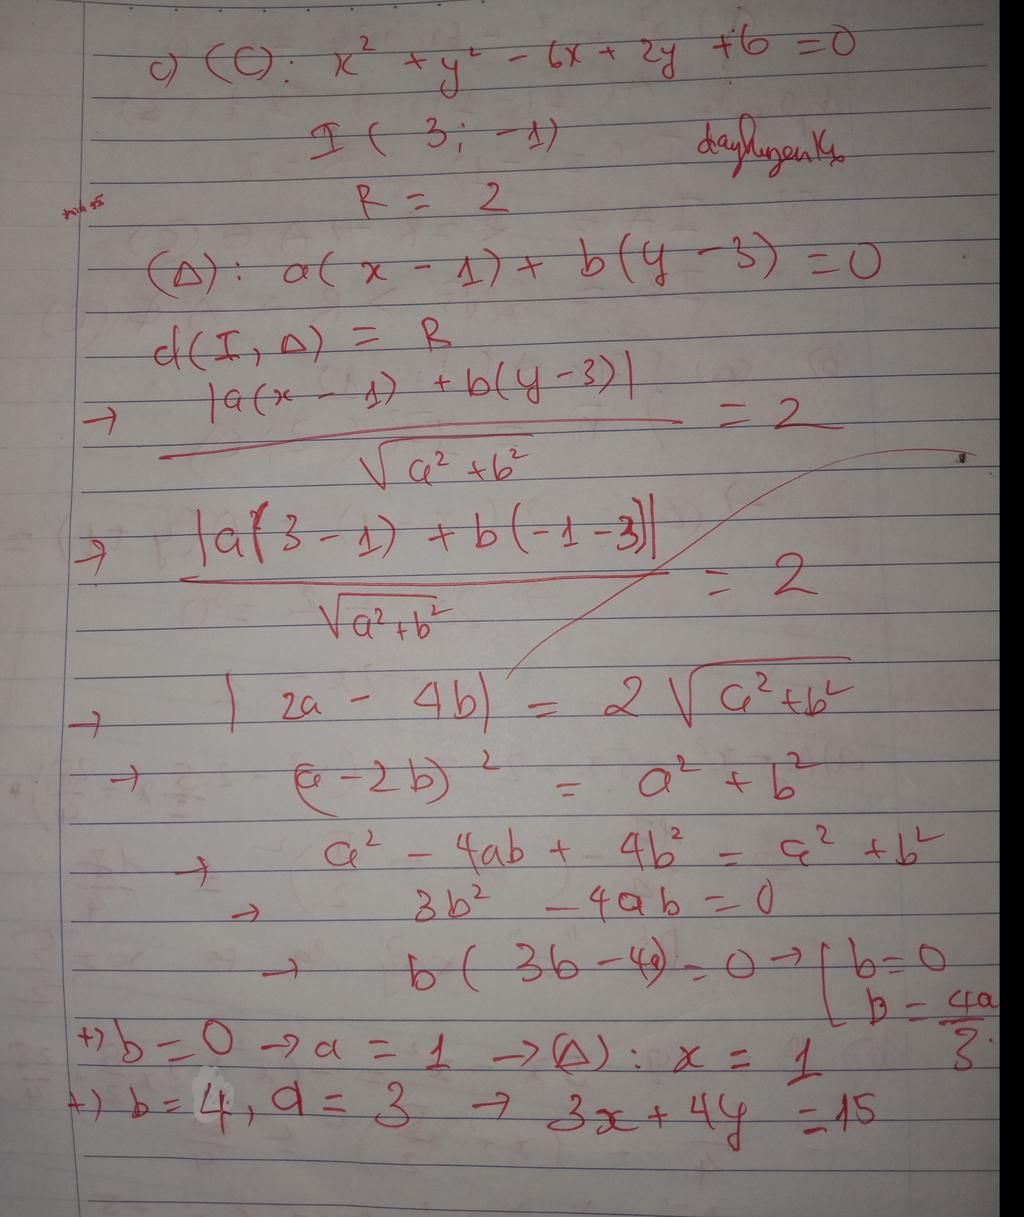 c) (C): x² + y² - 6x + 2y + 6 = 0
I ( 3; -1)
R = 2
(Δ): a( x - 1) + b(y - 3) = 0
d(I, Δ) = R
→ |a(x - 1) + b(y - 3)| / √(a² + b²) = 2
→ |a(3 - 1) + b(-1 - 3)| / √(a² + b²) = 2
→ | 2a - 4b| = 2 √(a² + b²)
→ (a - 2b)² = a² + b²
→ a² - 4ab + 4b² = a² + b²
→ 3b² - 4ab = 0
→ b ( 3b - 4a) = 0 → [ b = 0
b = 4a/3
+) b = 0 → a = 1 → (Δ) : x = 1
+) b = 4, a = 3 → 3x + 4y = 15